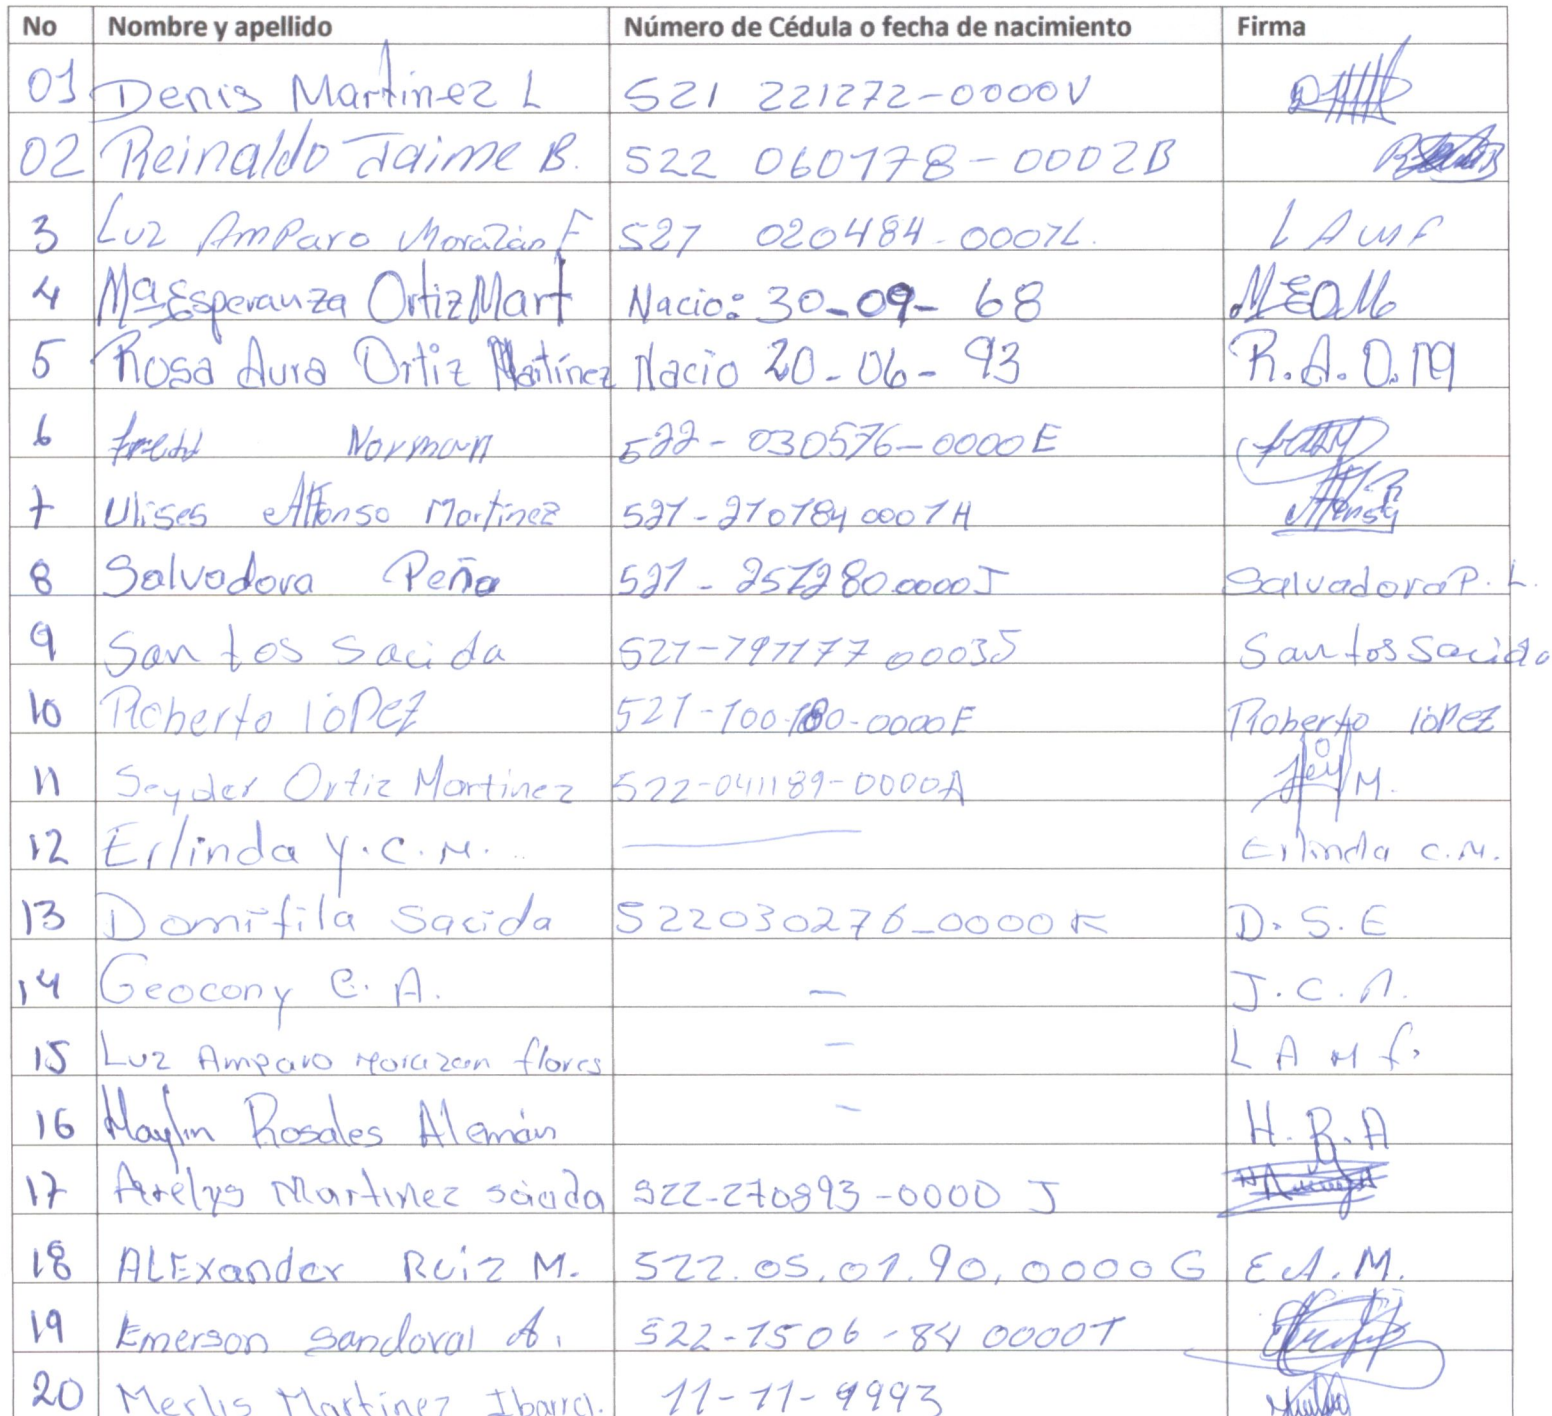 No Nombre y apellido Número de Cédula o fecha de nacimiento Firma
01 Denis Martinez L 521 221272-0000V
02 Reinaldo Jaime B. 522 060178-0002B
3 Luz Amparo Morazán F 521 020484-0001L. L A M F
4 Ma Esperanza Ortiz Mart Nacio: 30-09-68 M E O M
5 Rosa Aura Ortiz Martínez Nacio 20-06-93 R.A.O.M
6 Fredd Norman 522-030576-0000E
7 Ulises Alfonso Martinez 521-210184 0001H
8 Salvadora Peña 521-251280 0000J Salvadora P. L.
9 Santos Sacida 521-191177 0003S Santos Sacida
10 Roberto lópez 521-100180-0000F Roberto lópez
11 Seyder Ortiz Martinez 522-041189-0000A
12 Erlinda Y.C.M. Erlinda C.M.
13 Domitila Sacida 522030276-0000K D.S.E
14 Geocony C. A. - J.C.A.
15 Luz Amparo Morazan flores - L A M f.
16 Haylin Rosales Alemán - H.R.A
17 Arelys Martinez 522-270893-0000 J
18 ALExander Ruiz M. 522.05.01.90.0000G E.A.M.
19 Emerson Sandoval A. 522-1506-84 0000T
20 Merlis Martinez Ibarra. 11-11-1993